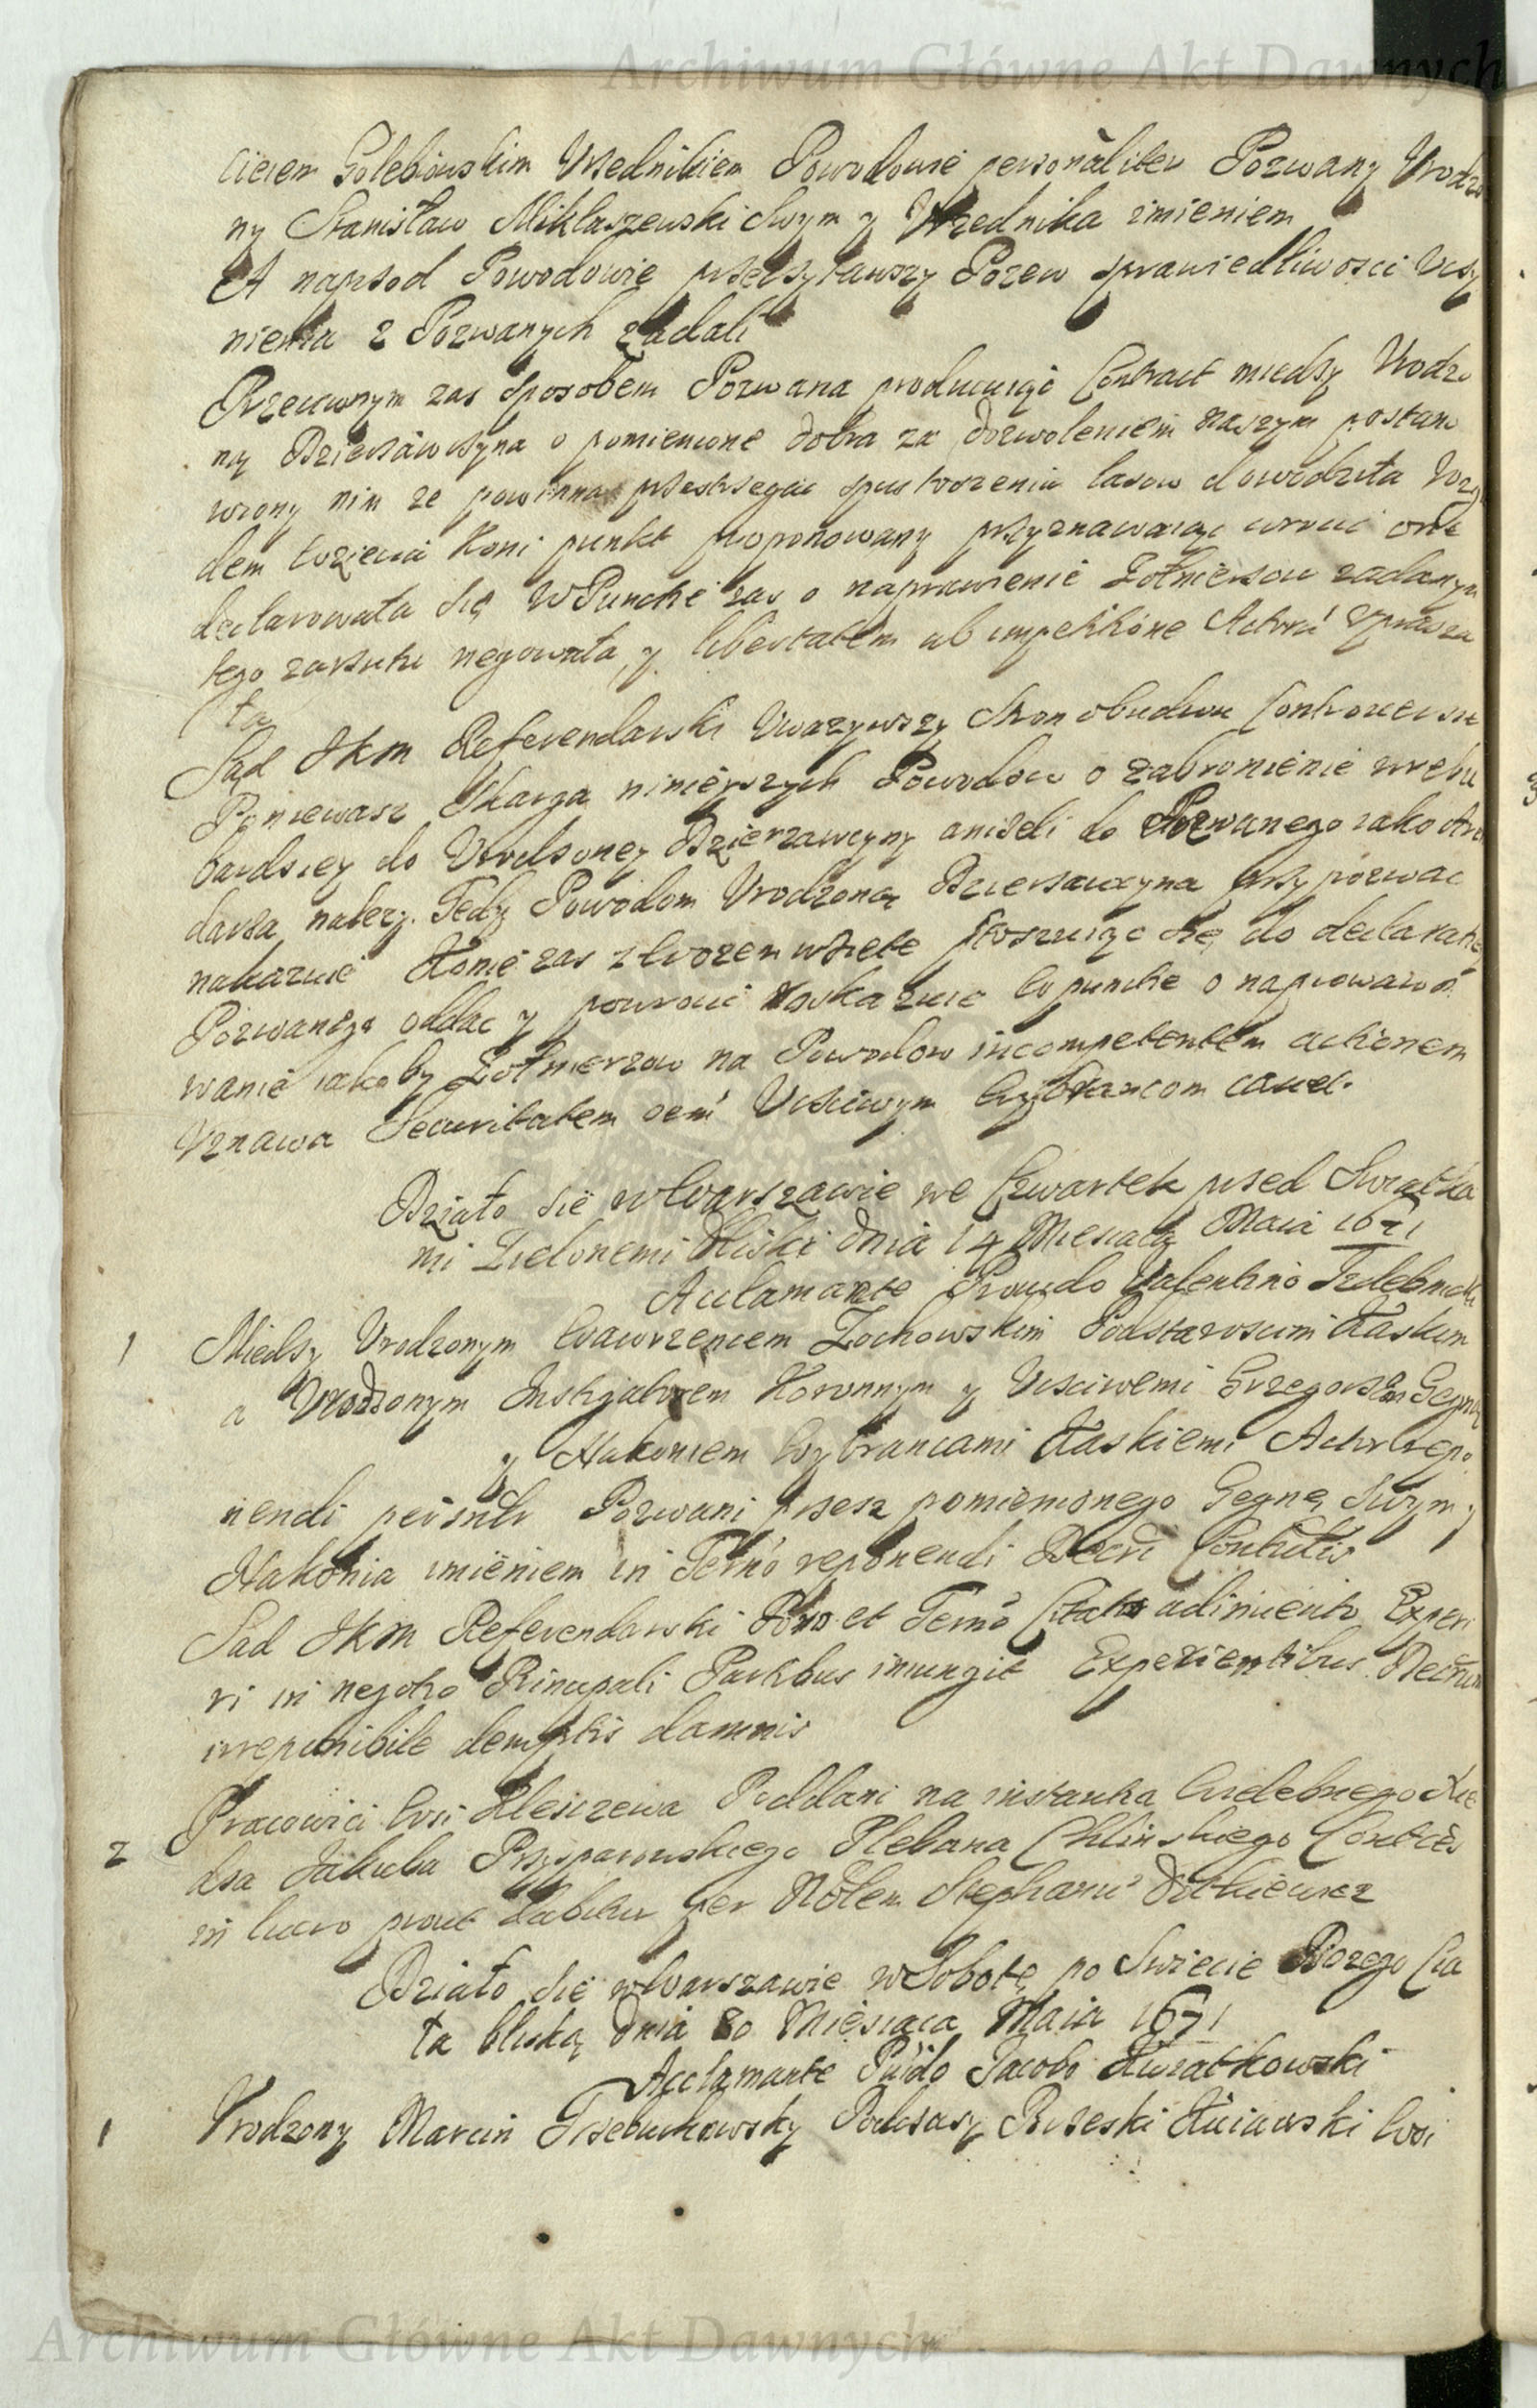 Archiwum Główne Akt Dawnych
ciciem Golebiowskim Vrzednikiem Powodowie personaliter Pozwany Vrodzo
ny Stanisław Miklaszewski Swym y Vrzednika imieniem
A naprzod Powodowie przeczytawszy Pozew sprawiedliwosci Vczy
nienia z Pozwanych ządali
Przeciwnym zas sposobem Pozwana producuiąc Contract miedzy Vrodzo
ny Dzierzawczyna o pomienione dobra za dozwoleniem naszym postano
wiony nim ze powinna przestrzegac spustoszenia lasow dowodziła Wzglę
dem wziecia Koni punkt proponowany przyznawaiąc wrocic one
declarowała się W Puncie zas o naprawienie Zołnierzow zadanym
tego zarzutu negowała y libertatem ab impetitione Actoru uprasza
ła
Sąd JKM Referendarski Vwazywszy Stron obudwu Controversie
Poniewasz Skarga ninieyszych Powodow o zabronienie wrebu
bardziey do Vrodzoney Dzierzawczyny anizeli do Pozwanego iako Aren
darza nalezy. Tedy Powodom Vrodzoną Dzierzawczyna przypozwac
nakazuie Konie zas z wozem wziete stosuiąc się do declaratiey
Pozwanego oddac y powrocic naskazuie W puncie o naprowadze
wanie iakoby Zołnierzow na Powodow incompetentem actionem
Vznawa Securitatem oem Vcciwym Wybrancom cavet.
Działo sie w Warszawie we Czwartek przed Swiątka
mi Zielonemi bliski dnia 14 Miesiąca Maia 1671
Acclamante Provido Valentino
1 Miedzy Vrodzonym Wawrzencem Zochowskim Podstaroscim Łaskim
a Vrodzonym Instigatorem Koronnym y Vcciwemi Grzegorzem Gegną
y Makoniem Wybrancami Łaskiemi Actor repo
nendi personlr Pozwani przez pomienionego Gegnę Swym y
Makonia imieniem in Termo reponendi Decri Contutis
Sad JKM Referendarski Pono et Termo Citato adinvento Experi
ri in negotio Principali Partibus iniungit Experientibus Decretum
irreponibile demptis damnis
2 Pracowici Wsi Kleszczewa Poddani na instantią Wielebnego Xie
dza Jakuba Przyparowskiego Plebana Chlinskiego Conttes
in lucro prout Labitur per Nobilem Stephanu Vitkiewicz
Działo sie w Warszawie w Sobotę po Swiecie Bozego Cia
ła bliską dnia 30 Miesiąca Maia 1671
Acclamante Prudo Jacobo Kwiatkowski
1 Vrodzony Marcin Trzebuchowsky Podczaszy Brzeski Kuiawski Wsi
Archiwum Główne Akt Dawnych